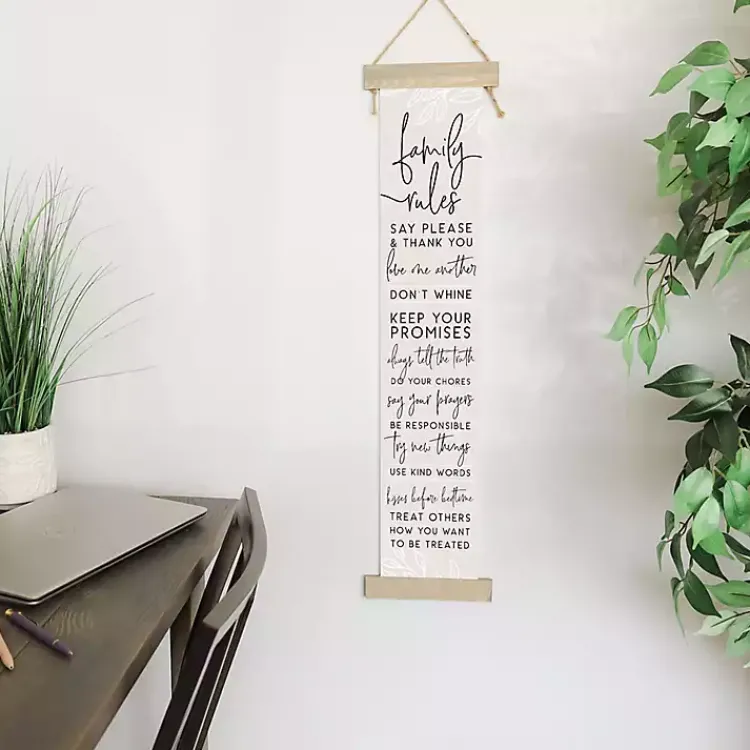 family
rules
SAY PLEASE
& THANK YOU
love one another
DON'T WHINE
KEEP YOUR
PROMISES
always tell the truth
DO YOUR CHORES
say your prayers
BE RESPONSIBLE
try new things
USE KIND WORDS
kisses before bedtime
TREAT OTHERS
HOW YOU WANT
TO BE TREATED